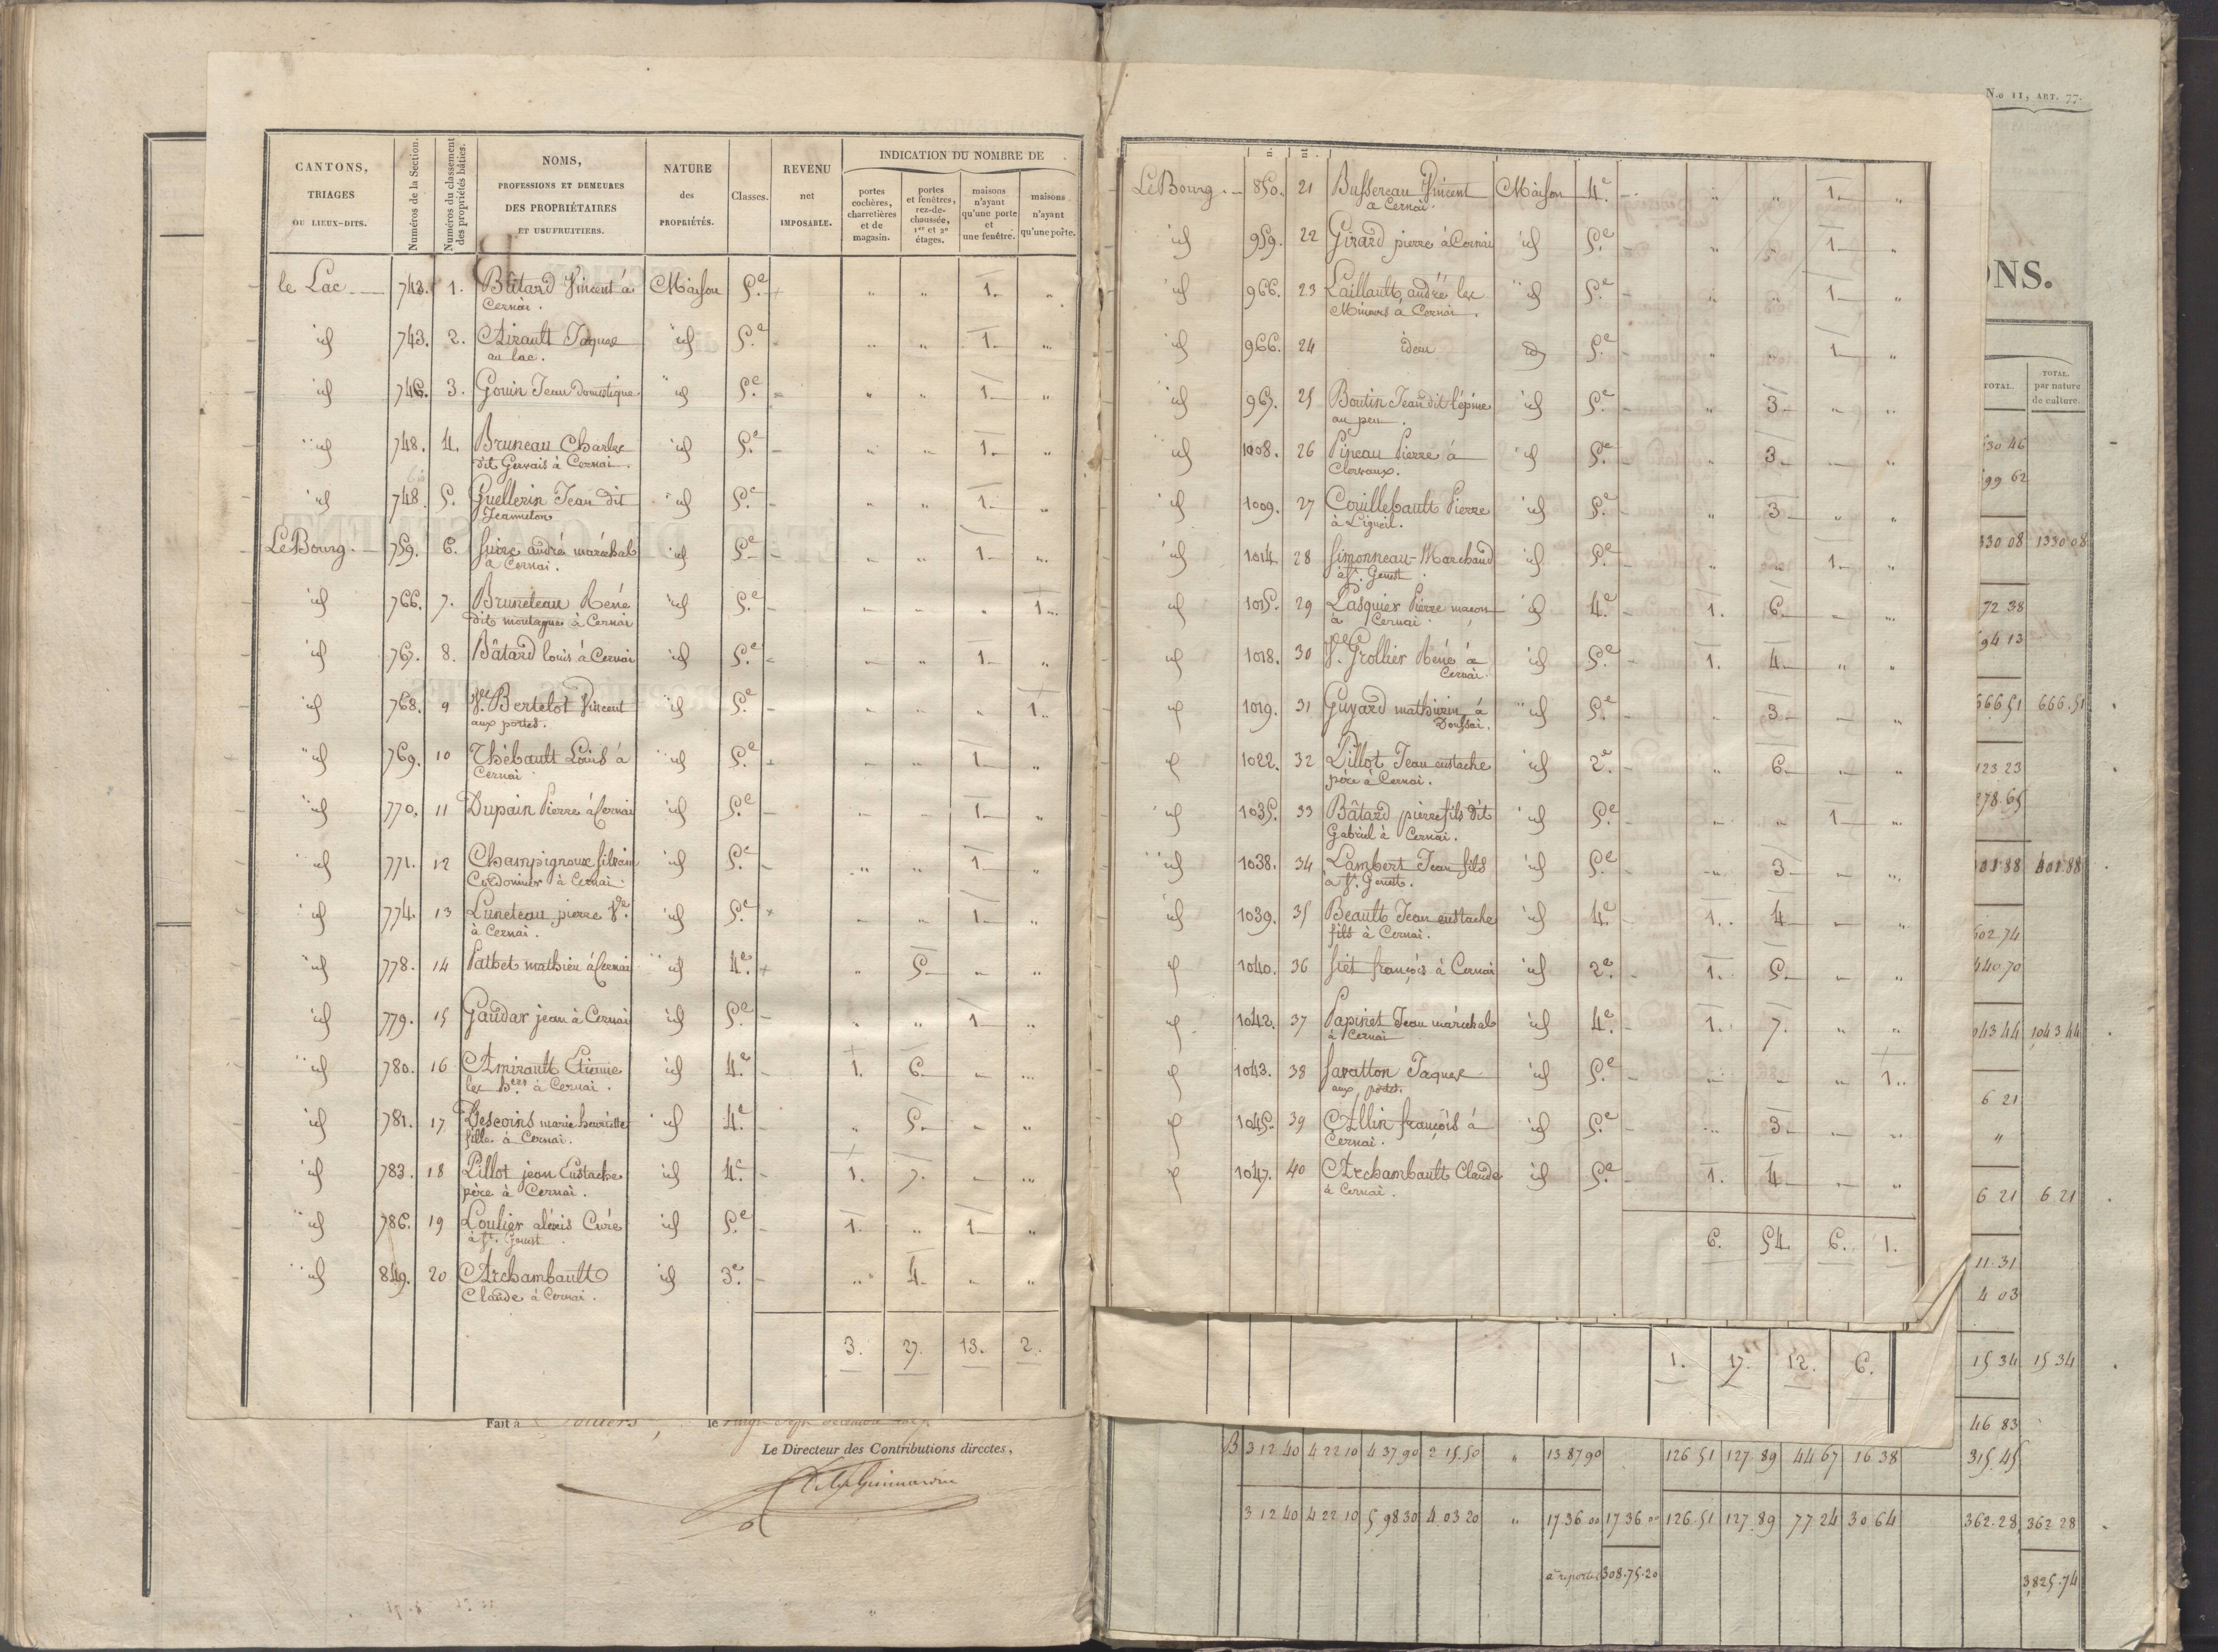 CANTONS,
TRIAGES
OU LIEUX-DITS.
Numéros de la Section.
Numéros du classement
des propriétés bâties.
NOMS,
PROFESSIONS ET DEMEURES
DES PROPRIÉTAIRES
ET USUFRUITIERS.
NATURE
des
PROPRIÉTÉS.
Classes.
REVENU
net
IMPOSABLE.
INDICATION DU NOMBRE DE
portes
cochères,
charretières
et de
magasin.
portes
et fenêtres,
rez-de-
chaussée,
1er et 2e
étages.
maisons
n'ayant
qu'une porte
et
une fenêtre.
maisons
n'ayant
qu'une porte.
le Lac 742. 1. Bâtard Vincent à Maison 5.e " " 1. "
Cernai.
id 743. 2. Airault Jaques id 5.e " " 1. "
au lac.
id 746. 3. Gouin Jean domestique id 5.e " " 1. "
id 748. 4. Bruneau Charles id 5.e " " 1. "
dit Gervais à Cernai.
id 748 5. Guellerin Jean dit id 5.e " " 1. "
Jeanneton
Le Bourg 759. 6. Suire andré maréchal id 5.e " " 1. "
à Cernai.
id 766. 7. Bruneteau René id 5.e " " " 1.
dit montagne à Cernai
id 767. 8. Bâtard louis à Cernai id 5.e " " 1. "
id 768. 9 Ve. Bertelot Vincent id 5.e " " " 1.
aux portes.
id 769. 10 Thébault Louis à id 5.e " " 1. "
Cernai
id 770. 11 Dupain Pierre à Cernai id 5.e " " 1. "
id 771. 12 Champignoux silvain id 5.e " " 1. "
Cordonnier à Cernai.
id 774. 13 Luneteau pierre Ve. id 5.e " " 1. "
à Cernai.
id 778. 14 Pathet mathieu à Cernai id 4.e " 5. " "
id 779. 15 Gaudar jean à Cernai id 5.e " " 1 "
id 780. 16 Amirault Etienne id 4.e 1. 6. " "
les hers à Cernai.
id 781. 17 Descoins marie henriette id 4.e " 5. " "
fille à Cernai.
id 783. 18 Pillot jean Eustache id 4.e 1. 7. " "
père à Cernai.
id 786. 19 Loulier alexis Curé id 5.e 1. " 1 "
à St. Genest
id 849. 20 Archambault id 3.e " 4. " "
Claude à Cernai.
3. 27. 13. 2.
Fait à Poitiers, le
Le Directeur des Contributions directes,
Le Bourg. 850. 21 Bussereau Vincent Maison 4.e " " 1. "
à Cernai.
id 959. 22 Girard pierre à Cernai id 5.e " " 1. "
id 966. 23 Laillault andré les id 5.e " " 1. "
Mineurs à Cernai.
id 966. 24 idem id 5.e " " 1. "
id 967. 25 Boutin Jean dit l'épine id 5.e " 3. " "
au peu.
id 1008. 26 Pineau Pierre à id 5.e " 3. " "
Clervaux.
id 1009. 27 Couillebault Pierre id 5.e " 3. " "
à Ligueil.
id 1014 28 Simonneau-Marchand id 5.e " " 1. "
à St. Genest
id 1015. 29 Pasquier Pierre maçon id 4.e 1. 6. " "
à Cernai.
id 1018. 30 Ve. Grollier René à id 5.e 1. 4. " "
Cernai.
id 1019. 31 Guyard mathurin à id 5.e " 3. " "
Doussai.
id 1022. 32 Pillot Jean eustache id 2.e " 6. " "
père à Cernai.
id 1035. 33 Bâtard pierre fils dit id 5.e " " 1. "
Gabriel à Cernai.
id 1038. 34 Lambert Jean fils id 5.e " 3. " "
à St. Genest.
id 1039. 35 Beault Jean eustache id 4.e 1. 4 " "
fils à Cernai.
id 1040. 36 Siét françois à Cernai id 2.e 1. 5. " "
id 1042. 37 Papinet Jean maréchal id 4.e 1. 7. " "
à Cernai
id 1043. 38 Savatton Jaques id 5.e " " " 1.
aux portes.
id 1045. 39 Allin françois à id 5.e " 3. " "
Cernai.
id 1047. 40 Archambault Claude id 5.e 1. 4. " "
à Cernai.
6. 54. 6. 1.
1. 17. 12. 6.
N.o 11, ART. 77.
ONS.
TOTAL.
TOTAL
par nature
de culture.
30 46
99 62
330 08 1330 08
72 38
94 13
666 51 666.51
123 23
278.65
401 88 401 88
602 74
440.70
043 44 1043 44
6 21
"
6 21 6 21
11.31
4 03
15 34 15 34
46 83
B 3 12 40 4 22 10 4 37 90 2 15.50 " 13 87 90 126 51 127.89 44 67 16 38 315.45
3 12 40 4 22 10 5 98 30 4 03 20 " 17 36 00 17 36 00 126.51 127.89 77 24 30 64 362.28 362 28
à reporter 308.75.20 3,825.74